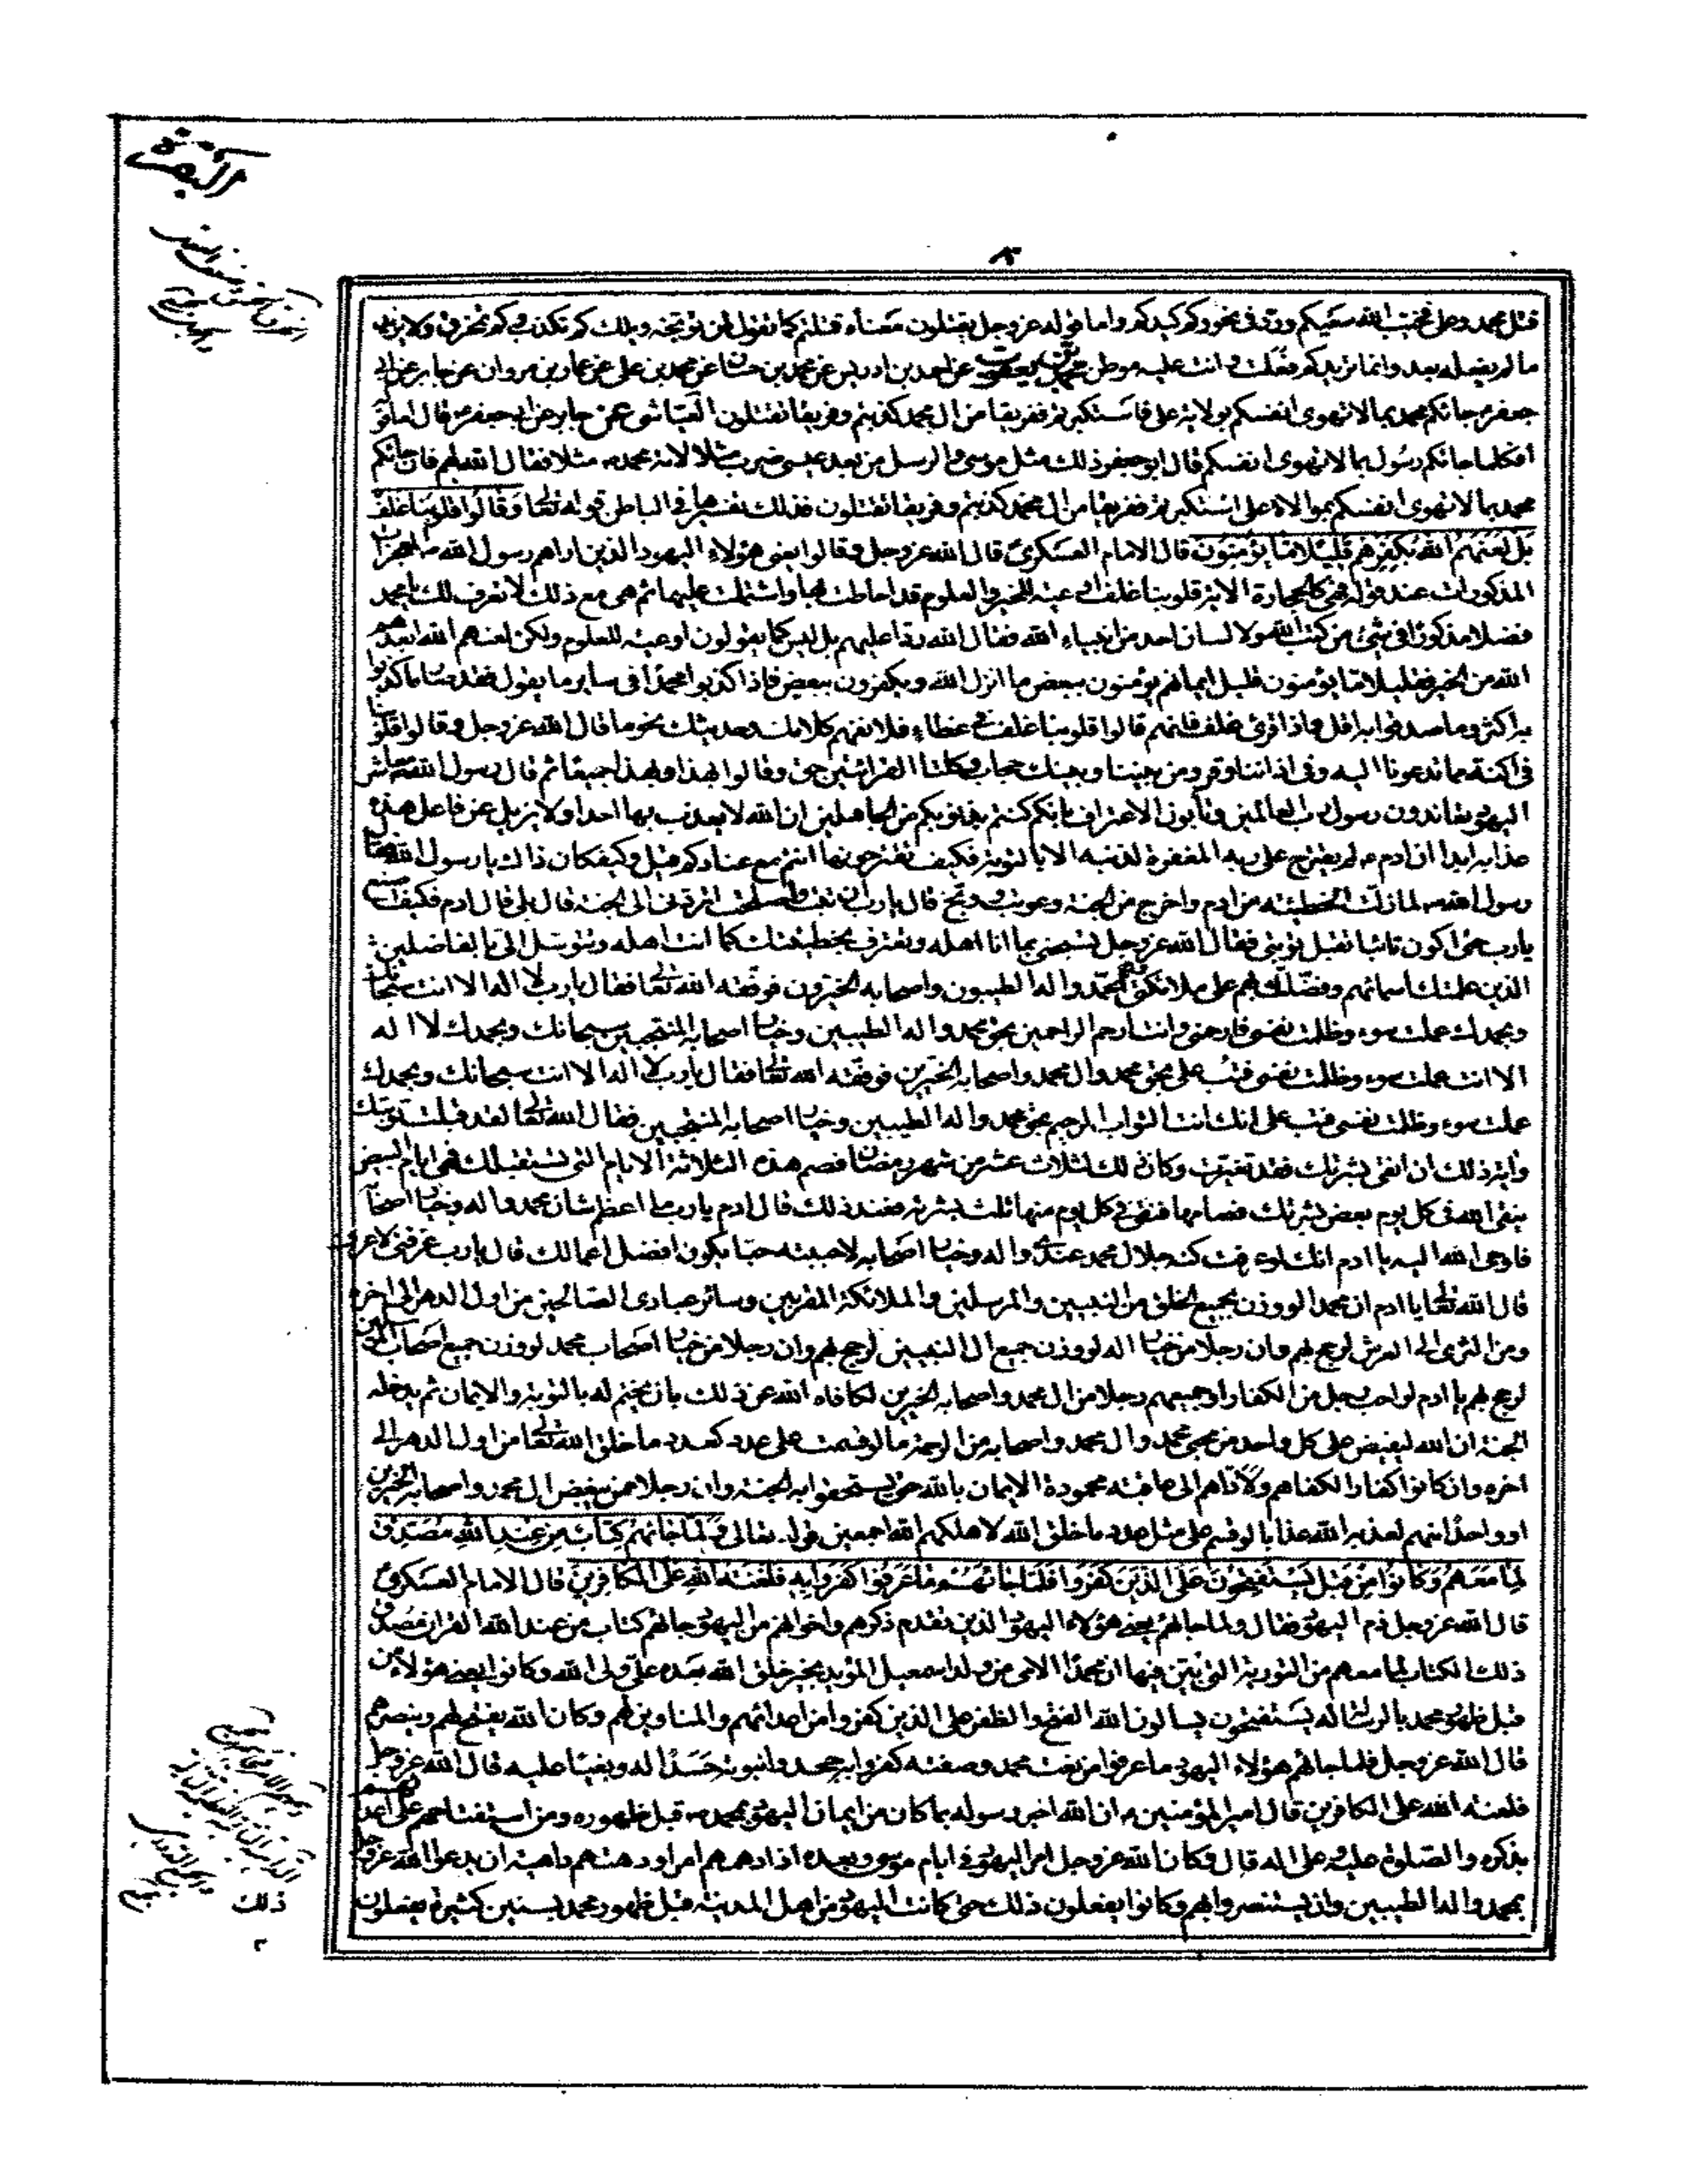 قتل محمد وعلى فخيب الله سعيكم ورد فى نحوركم كيدكم واما قوله عز وجل تقتلون معناه قتلتم كما تقول لمن توبخه ويلك كم تكذب وكم تمخرق ولا تريد
ما لم يفعله بعد وانما تريد كم فعلت وانت عليه موطن محمد بن يعقوب عن احمد بن ادريس عن محمد بن حسان عن محمد بن على عن عمار بن مروان عن جابر عن ابى
جعفر ع جائكم محمد بما لا تهوى انفسكم بولاية على فاستكبرتم ففريقا من ال محمد كذبتم وفريقا تقتلون العياشى عن جابر عن ابى جعفر ع قال اما قوله
افكلما جائكم رسول بما لا تهوى انفسكم قال ابو جعفر ذلك مثل موسى والرسل من بعده عيسى ضرب مثلا لامة محمد ص مثلا فقال الله لهم فان جائكم
محمد بما لا تهوى انفسكم بموالاة على استكبرتم ففريقا من ال محمد كذبتم وفريقا تقتلون فذلك تفسيرها فى الباطن قوله تعالى وَقَالُوا قُلُوبُنَا غُلْفٌ
بَل لَعَنَهُمُ اللهُ بِكُفْرِهِمْ فَقَلِيلًا مَا يُؤْمِنُونَ قال الامام العسكرى ع قال الله عز وجل وقالوا يعنى هؤلاء اليهود الذين اراهم رسول الله ص المعجزات
المذكورات عند قوله فهى كالحجارة الاية قلوبنا غلف اوعية للخير والعلوم قد احاطت بها واشتملت عليها ثم هى مع ذلك لا تعرف لك يا محمد
فضلا مذكورا فى شئ من كتب الله ولا لسان احد من انبياء الله فقال الله ردا عليهم بل ليس كما يقولون اوعية للعلوم ولكن لعنهم الله ابعدهم
الله من الخير فقليلا ما يؤمنون قليل ايمانهم يؤمنون ببعض ما انزل الله ويكفرون ببعض فاذا كذبوا محمدا فى ساير ما يقول فقد صار ما كذبوا
به اكثر وما صدقوا به اقل واذا قرئ غلف فانهم قالوا قلوبنا غلف فى غطاء فلا نفهم كلامك وحديثك نحو ما قال الله عز وجل وقالوا قلوبنا
فى اكنة مما تدعونا اليه وفى اذاننا وقر ومن بيننا وبينك حجاب وكلتا القرائتين حق وقالوا بهذا وبهذا جميعا ثم قال رسول الله ص معاشر
اليهود تعاندون رسول رب العالمين وتأبون الاعتراف بانكم كنتم بذنوبكم من الجاهلين ان الله لا يعذب بها احدا ولا يزيل عن فاعل هذه
عذابه ابدا ان ادم ع لم يقترح على ربه المغفرة لذنبه الا بالتوبة فكيف تقترحونها انتم مع عنادكم قيل وكيف كان ذاك يا رسول الله فقال
رسول الله ص لما زلت الخطيئة من ادم واخرج من الجنة وعوتب ووبخ قال يا رب ان تبت واصلحت اتردنى الى الجنة قال بلى قال ادم فكيف اصنع
يا رب حتى اكون تائبا تقبل توبتى فقال الله عز وجل تسبحنى بما انا اهله وتعترف بخطيئتك كما انت اهله وتتوسل الى بالفاضلين
الذين علمتك اسمائهم وفضلتك بهم على ملائكتى وهم محمد واله الطيبون واصحابه الخيرون فوفقه الله تعالى فقال يا رب لا اله الا انت سبحانك
وبحمدك عملت سوء وظلمت نفسى فارحمنى وانت ارحم الراحمين بحق محمد واله الطيبين وخيار اصحابه المنتجبين سبحانك وبحمدك لا اله
الا انت عملت سوء وظلمت نفسى فتب على بحق محمد وال محمد واصحابه الخيرين فوفقه الله تعالى فقال يا رب لا اله الا انت سبحانك وبحمدك
عملت سوء وظلمت نفسى فتب على انك انت التواب الرحيم بحق محمد واله الطيبين وخيار اصحابه المنتجبين فقال الله تعالى لقد قبلت توبتك
واية ذلك ان انقى بشرتك فقد تغيرت وكان ذلك لثلاث عشر من شهر رمضان فصم هذه الثلاثة الايام التى تستقبلك فهى ايام البيض
ينقى الله فى كل يوم بعض بشرتك فصامها فنقى فى كل يوم منها ثلث بشرته فعند ذلك قال ادم يا رب ما اعظم شان محمد واله وخيار اصحابه
فاوحى الله اليه يا ادم انك لو عرفت كنه جلال محمد عندى واله وخيار اصحابه لاحببته حبا يكون افضل اعمالك قال يا رب عرفنى لاعرف
قال الله تعالى يا ادم ان محمدا لو وزن بجميع الخلق من النبيين والمرسلين والملائكة المقربين وسائر عبادى الصالحين من اول الدهر الى اخره
ومن الثرى الى العرش لرجح بهم وان رجلا من خيار اله لو وزن جميع ال النبيين لرجح بهم وان رجلا من خيار اصحاب محمد لو وزن جميع اصحاب المرسلين
لرجح بهم يا ادم لو احب رجل من الكفار او جميعهم رجلا من ال محمد واصحابه الخيرين لكافاه الله عن ذلك بان يختم له بالتوبة والايمان ثم يدخله
الجنة ان الله ليفيض على كل واحد من محبى محمد وال محمد واصحابه من الرحمة ما لو قسمت على عدد كعدد ما خلق الله تعالى من اول الدهر الى
اخره وان كانوا كفارا لكفاهم ولاداهم الى عاقبة محمودة الايمان بالله حتى يستحقوا به الجنة وان رجلا ممن يبغض ال محمد واصحابه الخيرين
او واحدا منهم لعذبه الله عذابا لو قسم على مثل عدد ما خلق الله لاهلكهم الله اجمعين قوله تعالى وَلَمَّا جَائَهُمْ كِتَابٌ مِنْ عِنْدِ اللهِ مُصَدِّقٌ
لِمَا مَعَهُمْ وَكَانُوا مِنْ قَبْلُ يَسْتَفْتِحُونَ عَلَى الَّذِينَ كَفَرُوا فَلَمَّا جَائَهُمْ مَا عَرَفُوا كَفَرُوا بِهِ فَلَعْنَةُ اللهِ عَلَى الْكَافِرِينَ قال الامام العسكرى ع
قال الله عز وجل ذم اليهود فقال ولما جائهم يعنى هؤلاء اليهود الذين تقدم ذكرهم واخوانهم من اليهود جائهم كتاب من عند الله القران مصدق
ذلك الكتاب لما معهم من التورية التى بين فيها ان محمدا الامى من ولد اسمعيل المؤيد بخير خلق الله بعده على ولى الله وكانوا يعنى هؤلاء من
قبل ظهور محمد بالرسالة يستفتحون يسالون الله الفتح والظفر على الذين كفروا من اعدائهم والمناوين لهم وكان الله يفتح لهم وينصرهم
قال الله عز وجل فلما جائهم هؤلاء اليهود ما عرفوا من نعت محمد وصفته كفروا به جحدوا نبوته حسدا له وبغيا عليه قال الله عز وجل
فلعنة الله على الكافرين قال امير المؤمنين ع ان الله اخبر رسوله بما كان من ايمان اليهود بمحمد ص قبل ظهوره ومن استفتاحهم على اعدائهم
بذكره والصلوة عليه وعلى اله قال وكان الله عز وجل امر اليهود فى ايام موسى وبعده اذا دهمهم امر او دهتهم داهية ان يدعوا الله عز وجل
بمحمد واله الطيبين وان يستنصروا بهم وكانوا يفعلون ذلك حتى كانت اليهود من اهل المدينة قبل ظهور محمد بسنين كثيرة يفعلون
ذلك